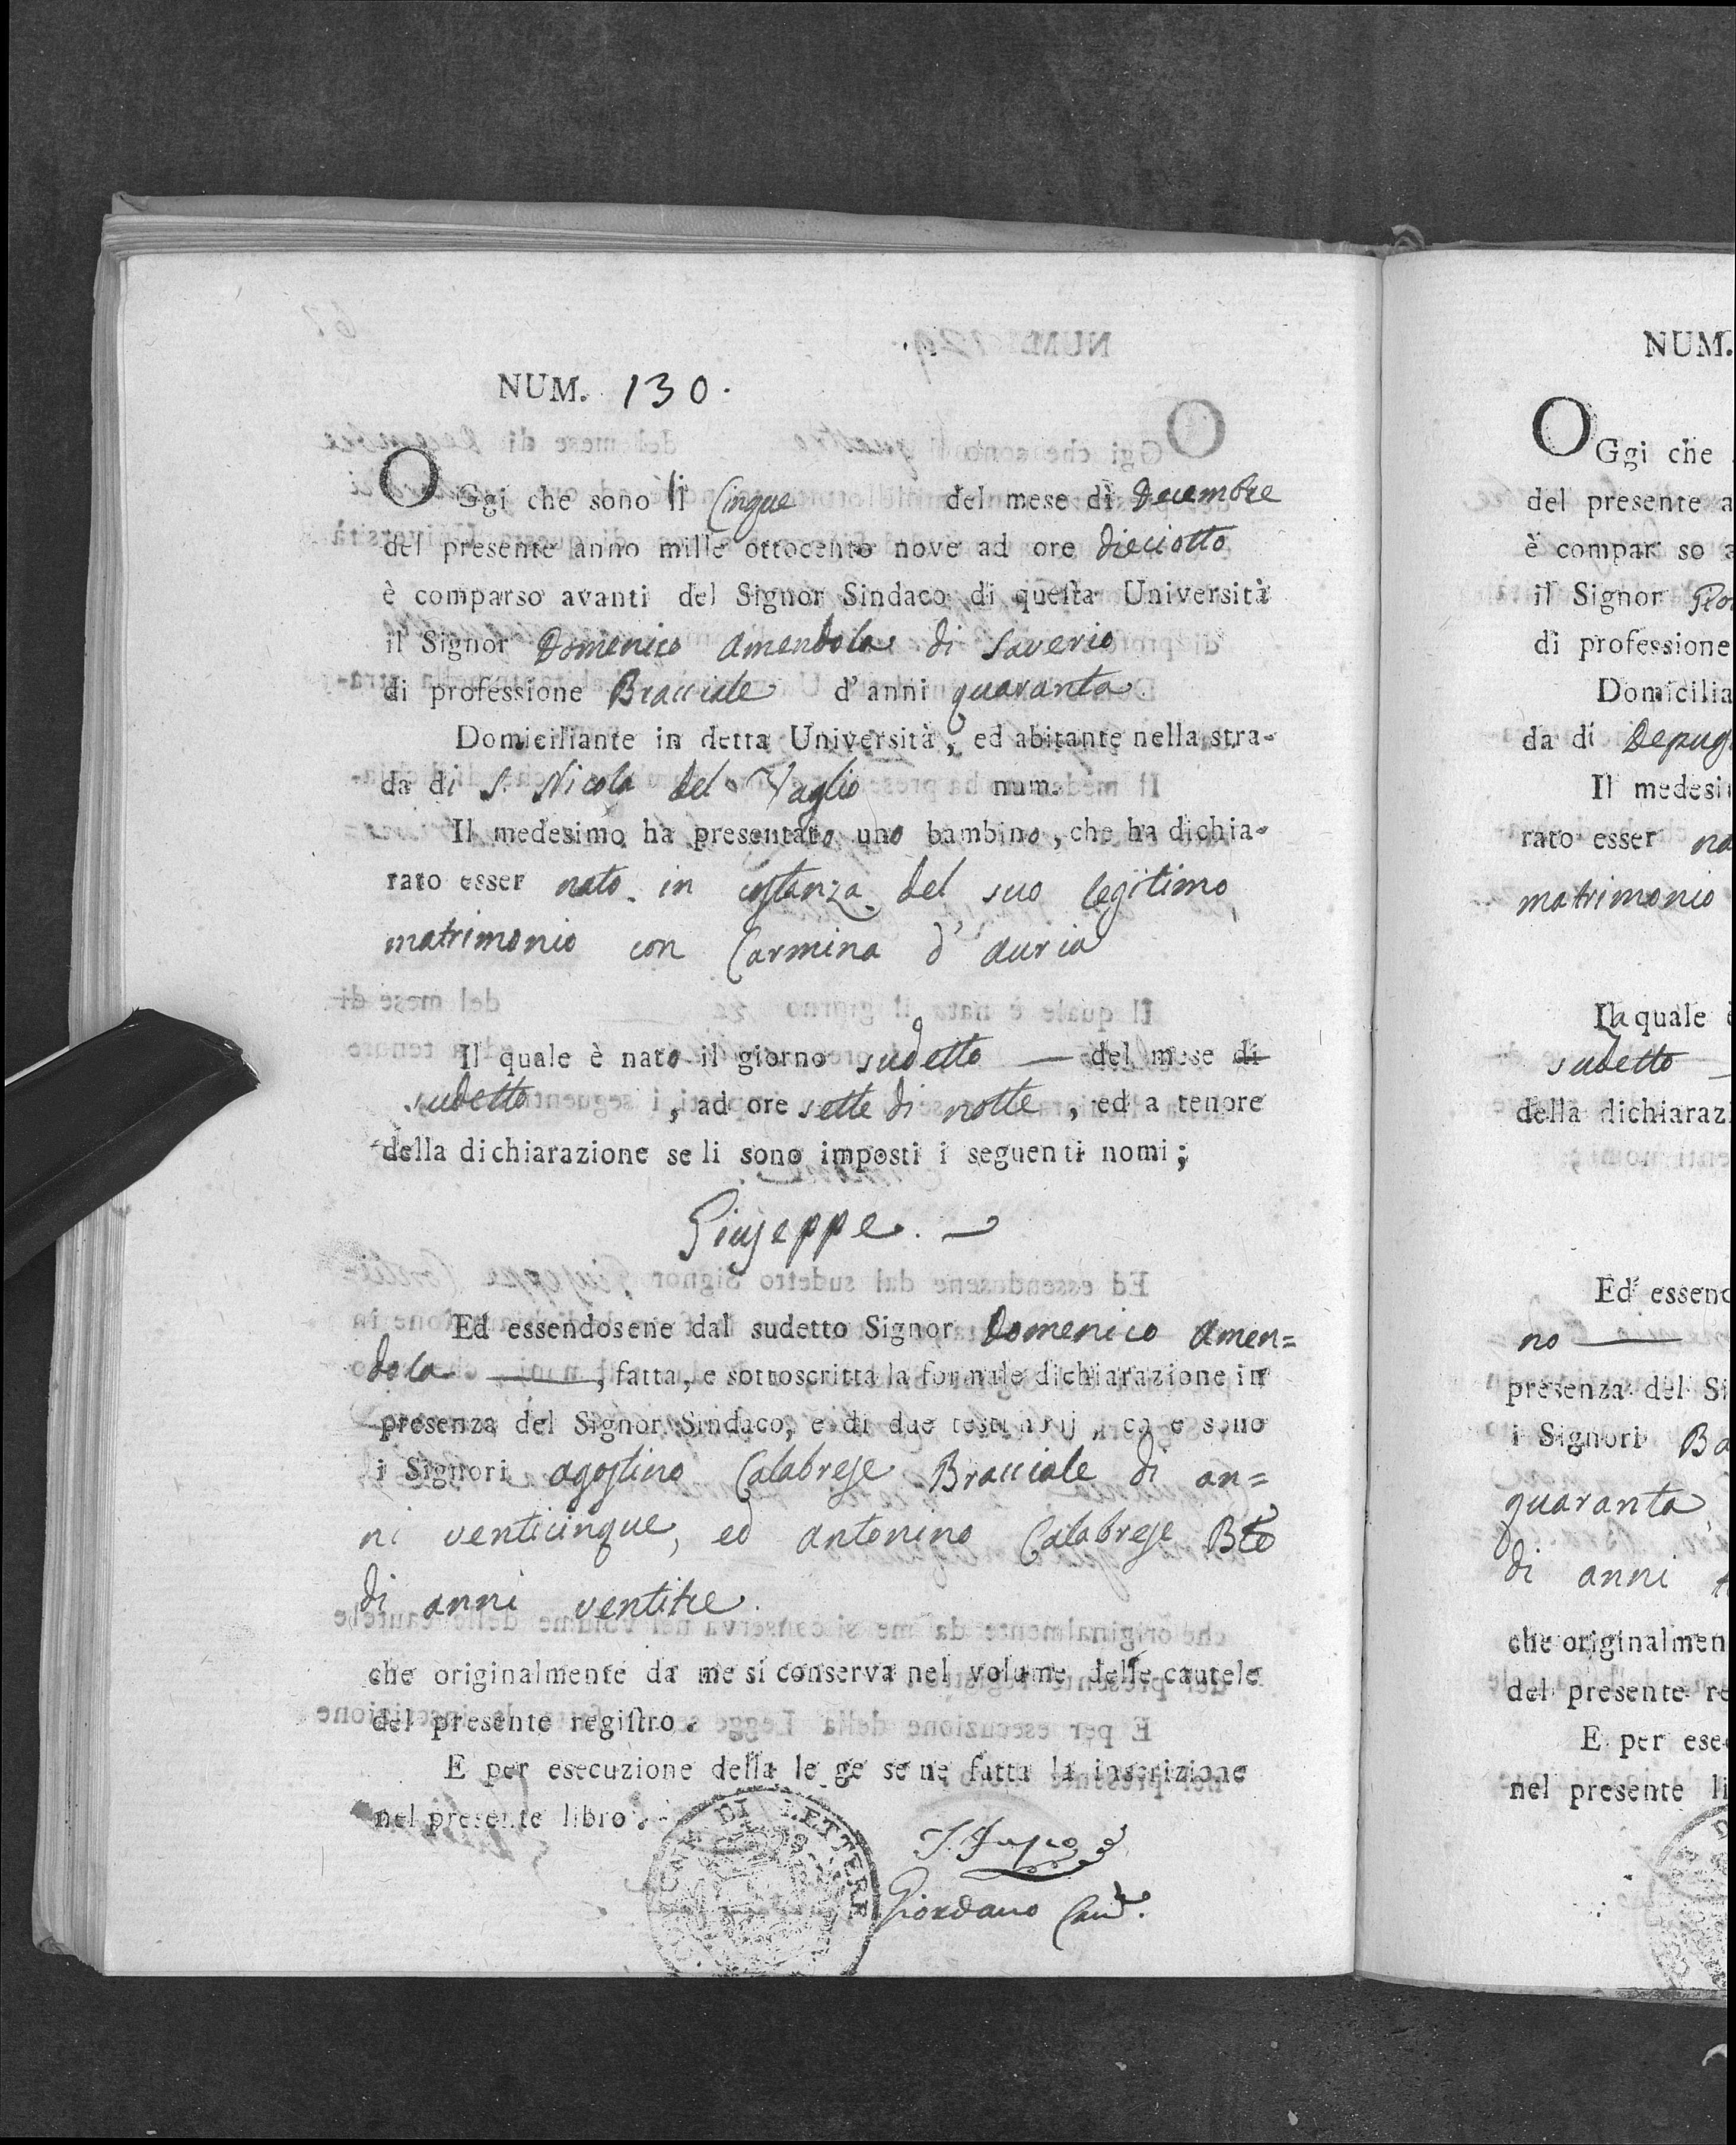 NUM. 130.
OGgi che sono li Cinque del mese di Decembre
del presente anno mille ottocento nove ad ore dieciotto
è comparso avanti del Signor Sindaco di questa Università
il Signor Domenico Amendola di Saverio
di professione Bracciale d'anni quaranta.
Domiciliante in detta Università, ed abitante nella stra-
da di S. Nicola del Vaglio num.
Il medesimo ha presentato uno bambino, che ha dichia-
rato esser nato in costanza del suo legitimo
matrimonio con Carmina d'Auria
Il quale è nato il giorno sudetto — del mese di
sudetto, ad ore sette di notte, ed a tenore
della dichiarazione se li sono imposti i seguenti nomi;
Giuseppe. —
Ed essendosene dal sudetto Signor Domenico Amen=
dola —, fatta, e sottoscritta la formale dichiarazione in
presenza del Signor Sindaco, e di due testimonj, che sono
i Signori Agostino Calabrese Bracciale di an=
ni venticinque, ed Antonino Calabrese Ble
di anni ventitre.
che originalmente da me si conserva nel volume delle cautele
del presente registro.
E per esecuzione della legge se ne fatta la inscrizione
nel presente libro.
DI LETTERE
Giordano
NUM.
OGgi che
del presente a
è comparso a
il Signor
di professione
Domicilia
da di Depug
Il medesi
rato esser na
matrimonio
La quale è
sudetto
della dichiaraz
Ed essend
no —
presenza del Si
i Signori Ba
quaranta
di anni
che originalmen
del presente re
E per ese
nel presente li